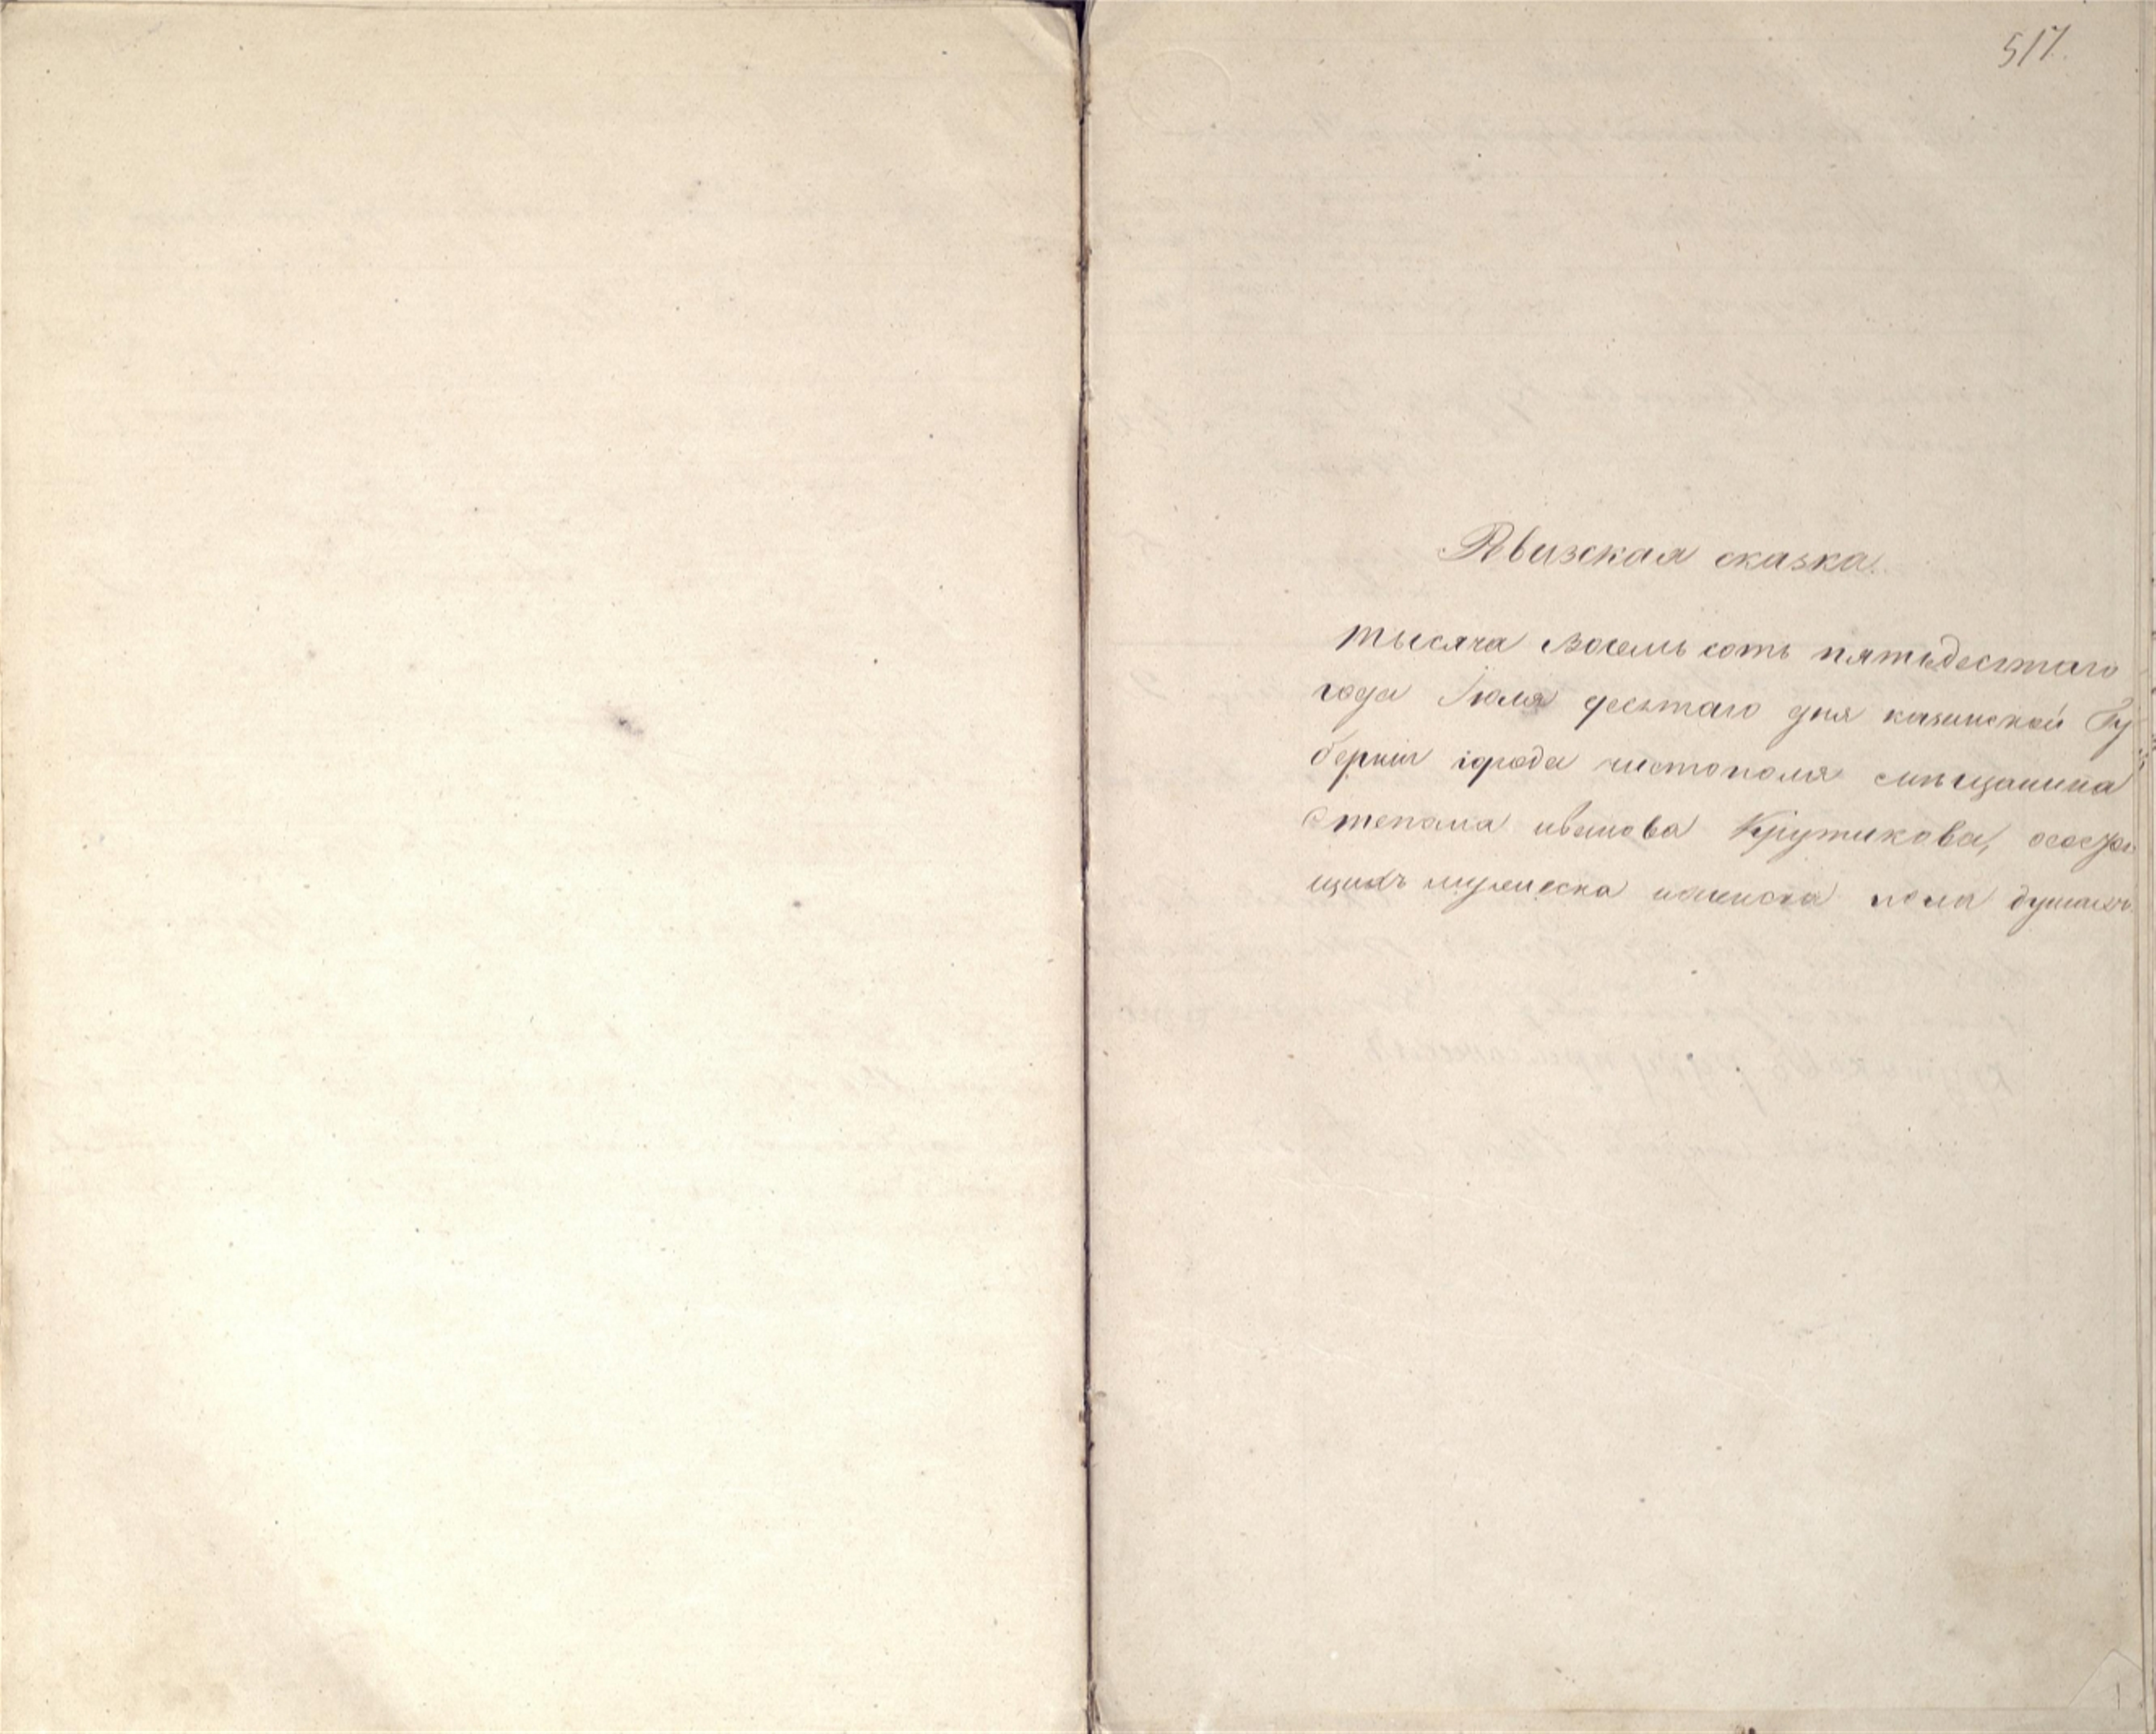 517.
Рвизская сказка.
тысяча восемь сотъ пятьдестаго
года Июля десятаго дня казанской Гу
берніи города чистополя
Степана иванова Крутикова,
щихъ мужеска иженска пола душахъ